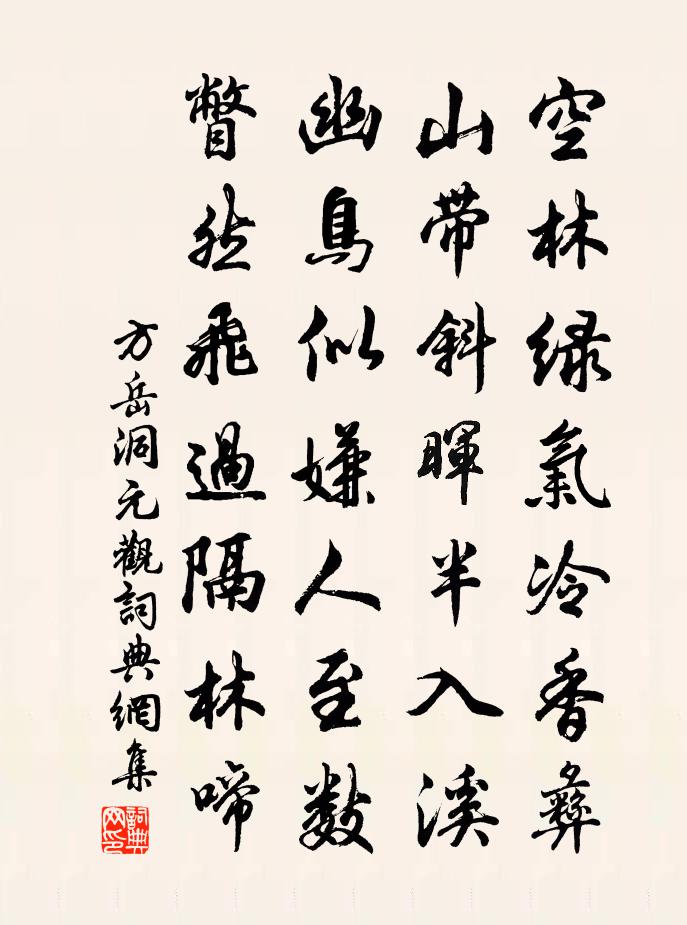 空林绿氣冷香彝
山帶斜暉半入溪
幽鳥似嫌人至數
瞥然飛過隔林啼
方岳洞元觀詞典網集
詞典网印